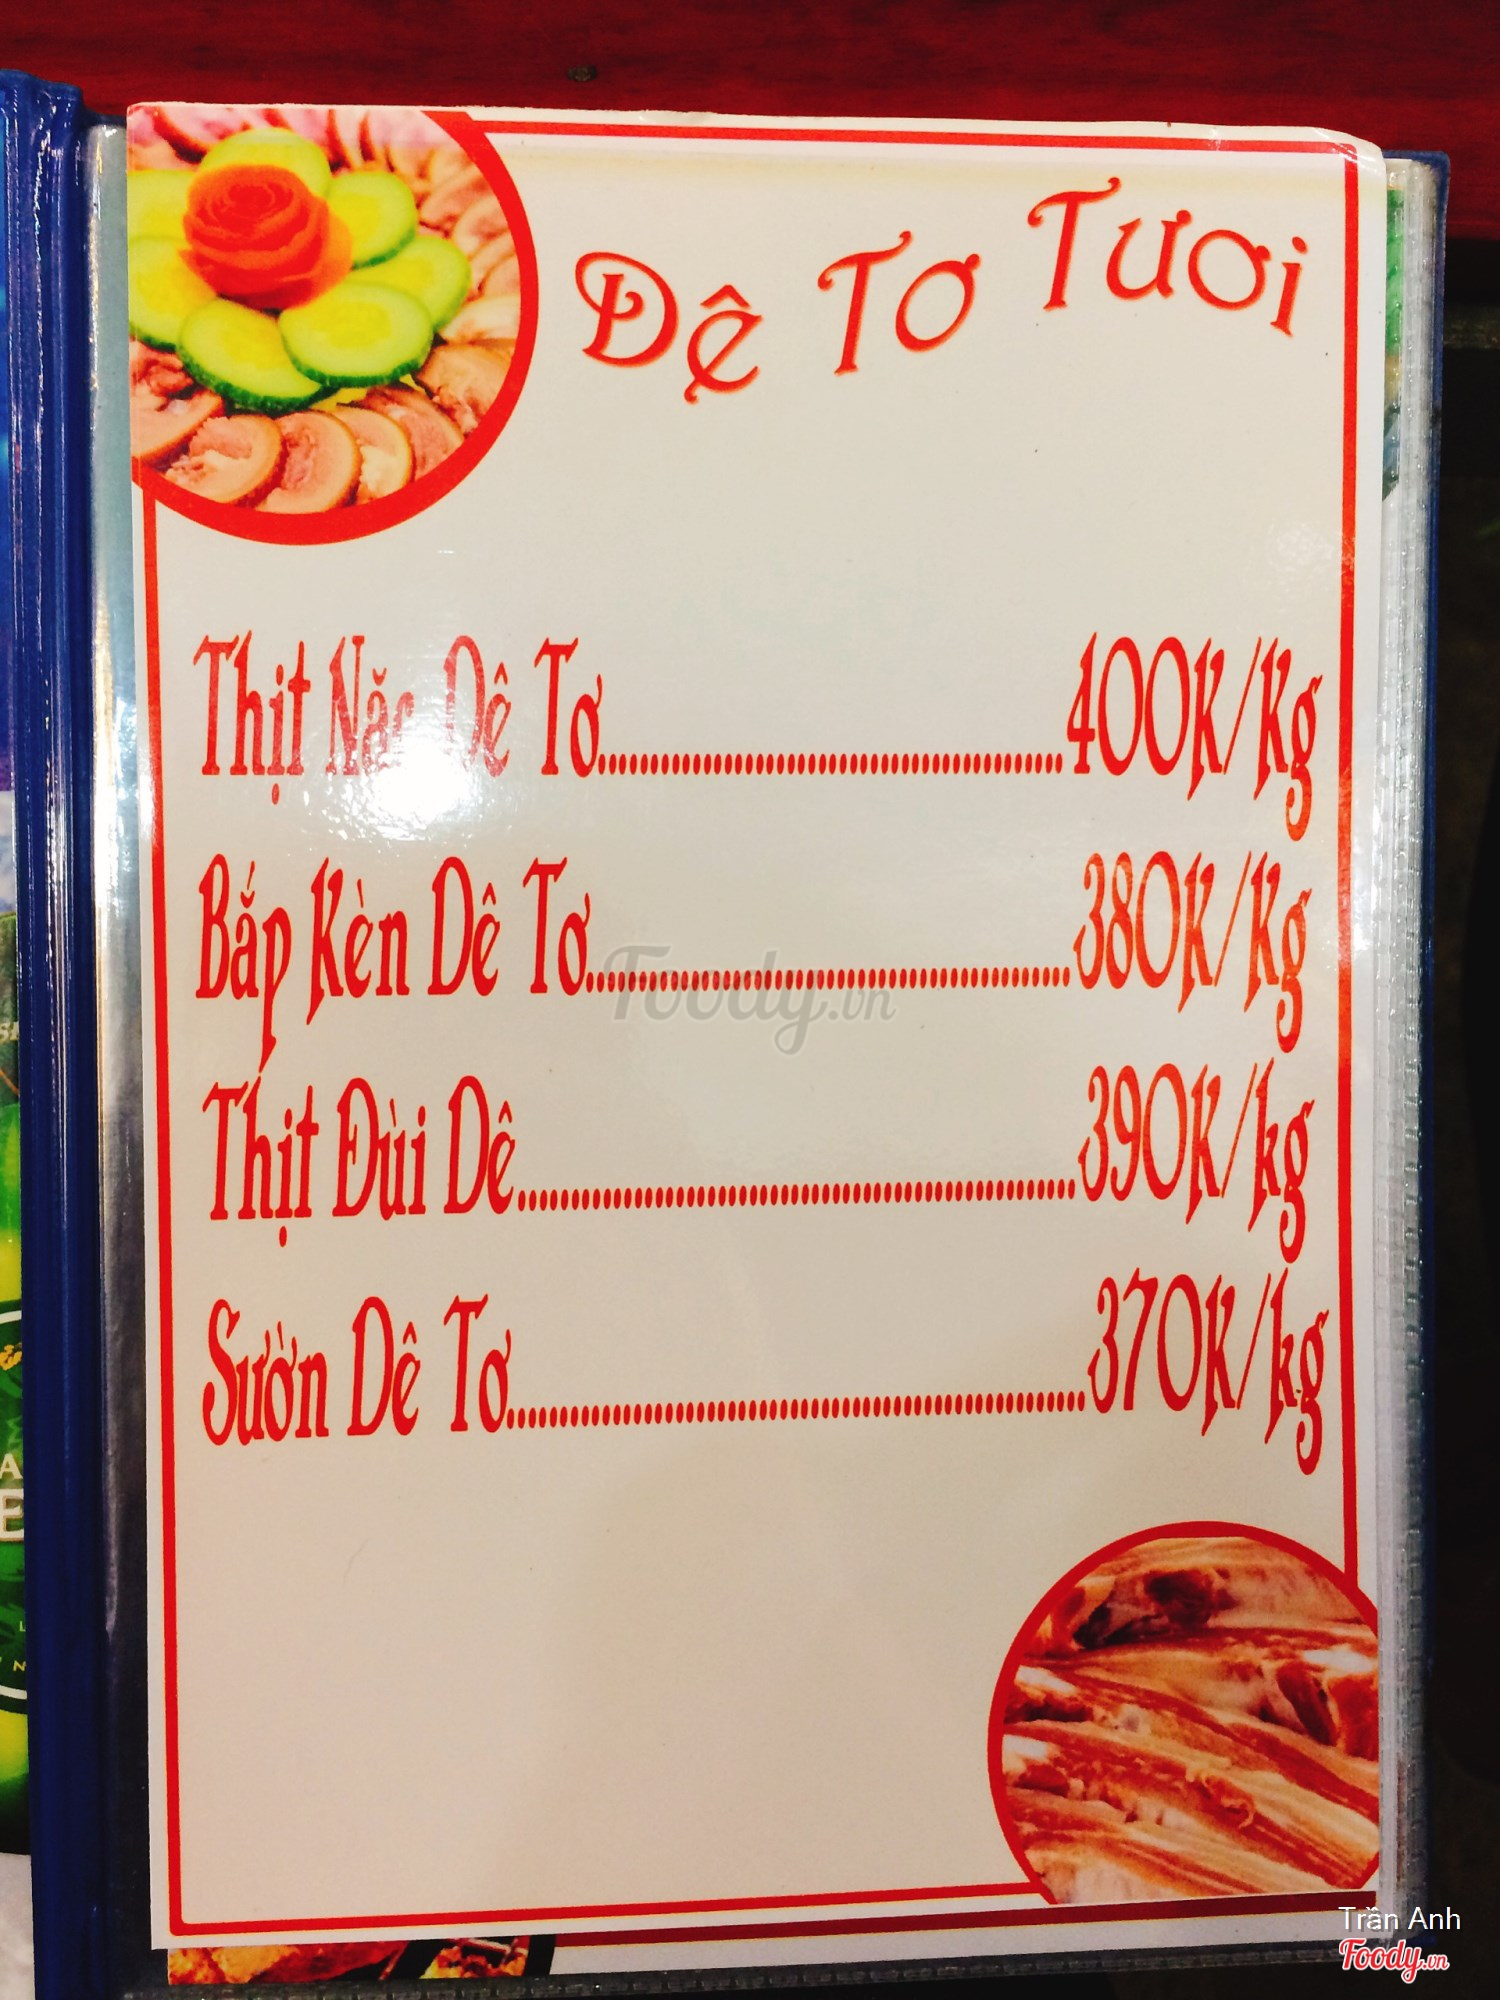 Dê Tơ Tươi
Thịt Nạc Dê Tơ 400K/Kg
Bắp Kèn Dê Tơ 380K/Kg
Foody.vn
Thịt Đùi Dê 390K/kg
Sườn Dê Tơ 370K/kg
Trần Anh
Foody.vn